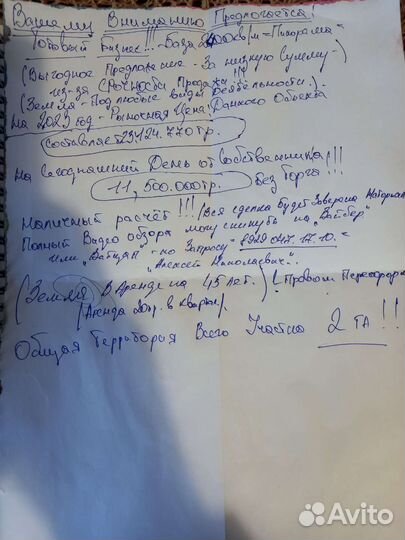 Вашему Вниманию Предлогается!
Готовый Бизнес!!! - База 2400кв/м - Пилорама -
(Выгодное Предложение - За низкую Сумму -)
из-за Срочности Продажи!!!
(Земля - Под любые виды Деятельности.) -
На 2023 год - Рыночная Цена! Данного Объекта
Составляет 23.124.770тр.
На Сегодняшний День от Собственника!!!
11,500.000тр. без торга!!!
Наличный расчёт!!! (Вся сделка будет Заверена Нотариал
Полный Видео обзор могу скинуть на "Вайбер"
или "Ватцап" - по Запросу - 8929 047.17.10. -
"Алексей Николаевич".
(Земля В Аренде на 45 лет.) (! Правом Переофор
(Аренда 20тр. в квартал)
Общая Территория Всего Участка 2 га!!
Avito